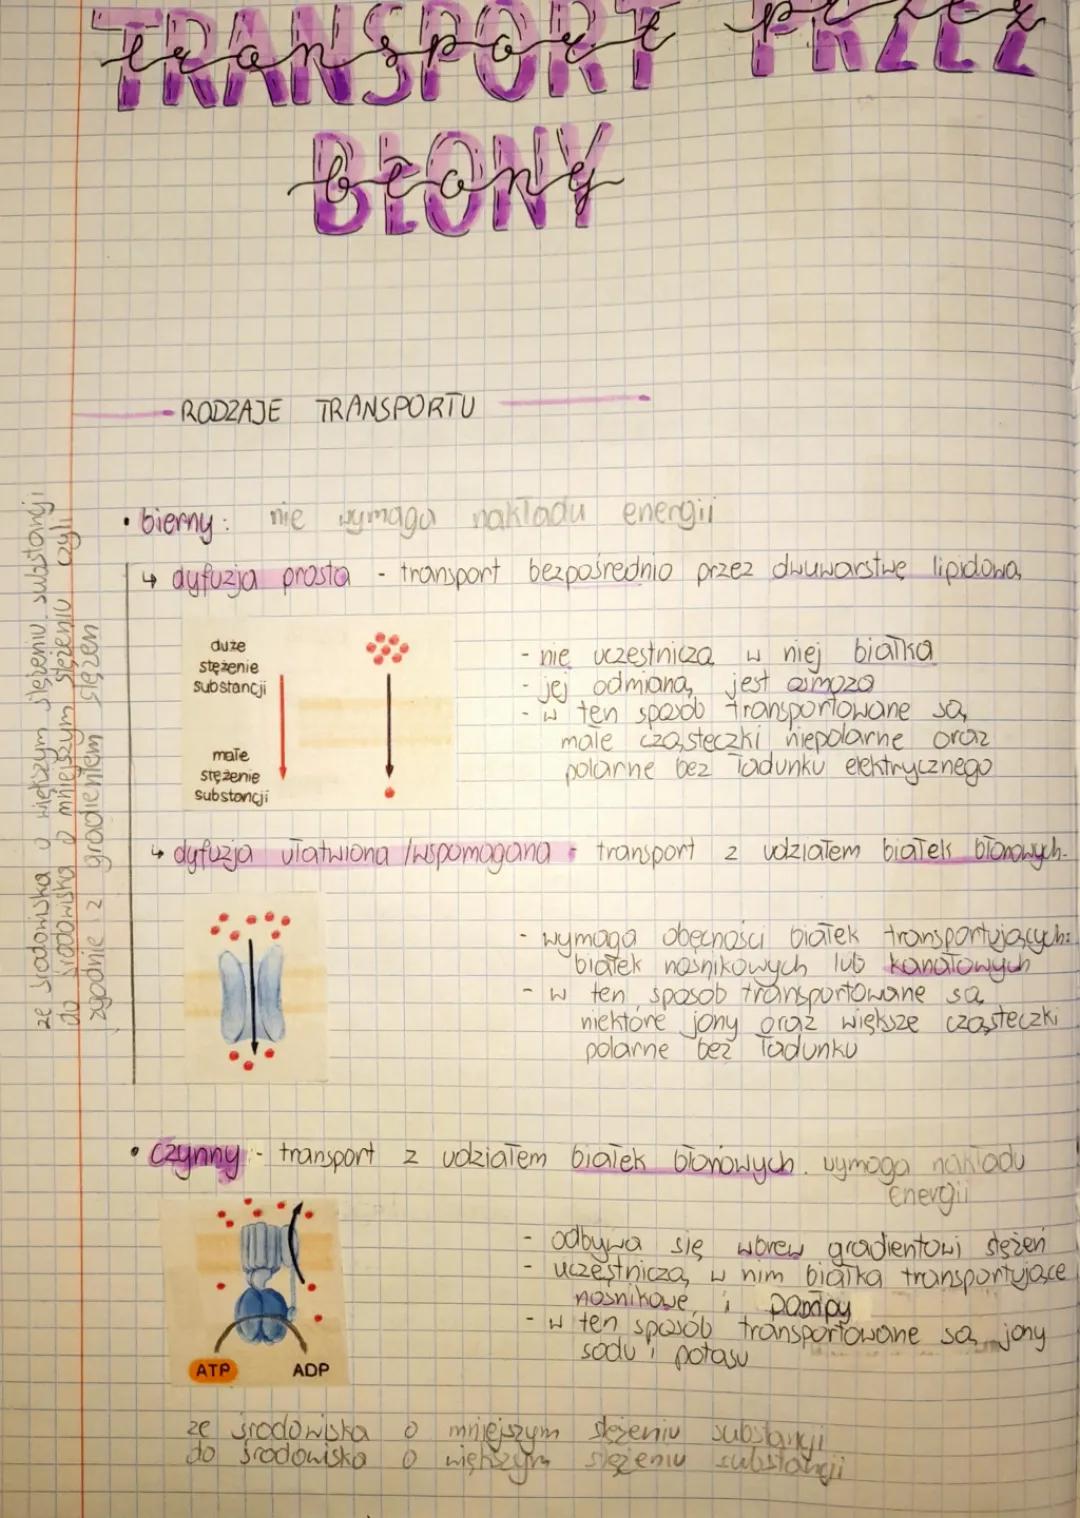 TRANSPORT PRZEZ
transport przez
BŁONY
błony
RODZAJE TRANSPORTU
• bierny: nie wymaga nakładu energii
ze środowiska o większym stężeniu substancji
do środowiska o mniejszym stężeniu czyli
zgodnie z gradientem stężeń
↳ dyfuzja prosta - transport bezpośrednio przez dwuwarstwę lipidową
duże
stężenie
substancji
małe
stężenie
substancji
- nie uczestniczą w niej białka
- jej odmianą jest osmoza
- w ten sposób transportowane są
małe cząsteczki niepolarne oraz
polarne bez ładunku elektrycznego
↳ dyfuzja ułatwiona /wspomagana - transport z udziałem białek błonowych
- wymaga obecności białek transportujących:
białek nośnikowych lub kanałowych
- w ten sposób transportowane są
niektóre jony oraz większe cząsteczki
polarne bez ładunku
• czynny:- transport z udziałem białek błonowych. wymaga nakładu
energii
- odbywa się wbrew gradientowi stężeń
- uczestniczą w nim białka transportujące
nośnikowe i pompy
- w ten sposób transportowane są jony
sodu i potasu
ATP
ADP
ze środowiska o mniejszym stężeniu substancji
do środowiska o większym stężeniu substancji